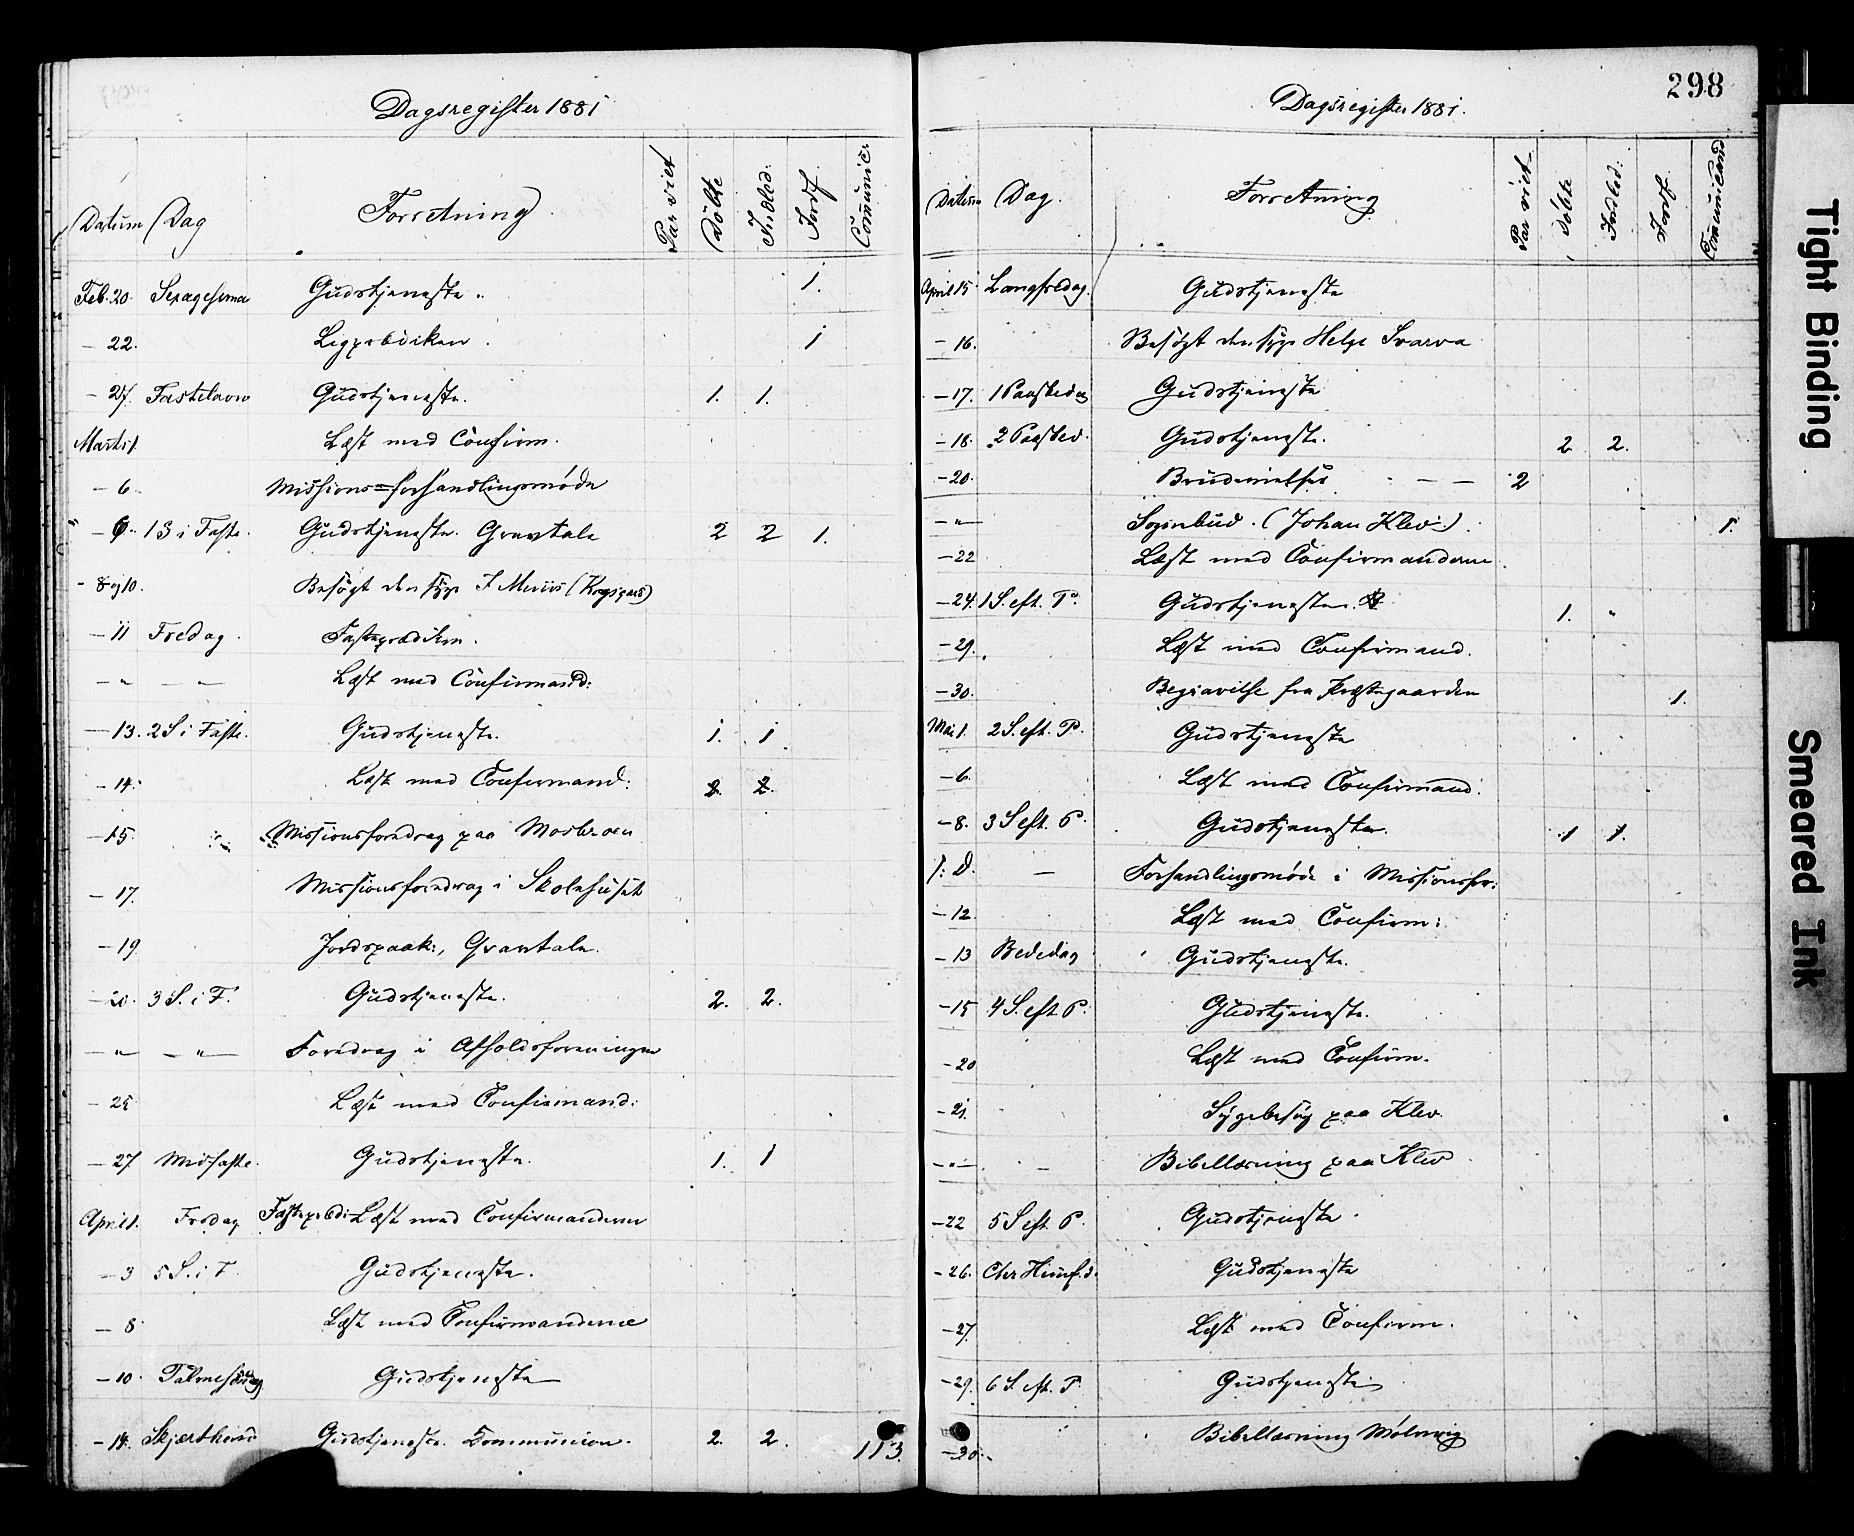 Dagsregister 1881
Datum Dag Forretning Par viet Døbte Indled: Jordf. Com̄unic:
Feb. 20. Sexagesima Gudstjeneste. 1.
- 22. Ligprædiken. 1
- 27. Fastelavn Gudstjeneste. 1. 1.
Marts 1. Læst med Confirm.
- 6. Missions=forhandlingsmøde
" - 6. 1 S i Faste. Gudstjeneste. Gravtale 2 2 1.
- 8 og 10. Besøgt den syge
- 11 Fredag. Fasteprædiken.
- " - - " - Læst med Confirmand:
- 13. 2 S i Faste. Gudstjeneste. 1. 1.
- 14. Læst med Confirmand: 2. 2.
- 15. Missionsforedrag paa Mosbroen
- 17. Missionsforedrag i Skolehuset
- 19. Jordspaak:, Gravtale.
- 20. 3 S. i F. Gudstjeneste. 2. 2.
- " - - " - Foredrag i Afholdsforeningen
- 25 Læst med Confirmand:
- 27 Midfaste. Gudstjeneste. 1. 1
April 1. Fredag Fasteprædi: Læst med Confirmanderne
- 3 5 S. i F. Gudstjeneste.
- 8 Læst med Confirmanderne
- 10. Palmesøndag Gudstjeneste
- 14. Skjærthorsd Gudstjeneste. Communion. 2. 2. 113.
298
Dagsregister 1881.
Datum Dag. Forretning Par viet Døbte Indled: Jordf. Com̄unicand
April 15 Langfredag. Gudstjeneste
- 16. Besøgt den syge Helge Svarva
- 17. 1 Paaskedag Gudstjeneste
- 18. 2 Paasked. Gudstjeneste. 2 2.
- 20. Brudevielser - - 2
- " - Sognebud. (Johan Klev.) 1.
- 22 Læst med Confirmanderne.
- 24. 1 S. eft. P. Gudstjeneste. 1. "
- 29. Læst med Confirmand.
- 30. Begravelse fra Præstegaarden 1.
Mai 1. 2 S. eft. P. Gudstjeneste
- 6. Læst med Confirmand.
- 8. 3 S eft. P. Gudstjeneste. 1 1.
S: D. - Forhandlingsmøde i Missionsfor:
- 12. Læst med Confirm:
- 13 Bededag Gudstjeneste.
- 15 4 S. eft P. Gudstjeneste.
- 20 Læst med Confirm.
- 21. Sygebesøg paa Klev.
- " - - Bibellæsning paa Klev
- 22 5 S eft. P. Gudstjeneste.
- 26. Chr Himf. d. Gudstjeneste
- 27. Læst med Confirm.
- 29. 6 S. eft. P. Gudstjeneste
- 30. Bibellæsning Mølnvig
Tight Binding
Smeared Ink